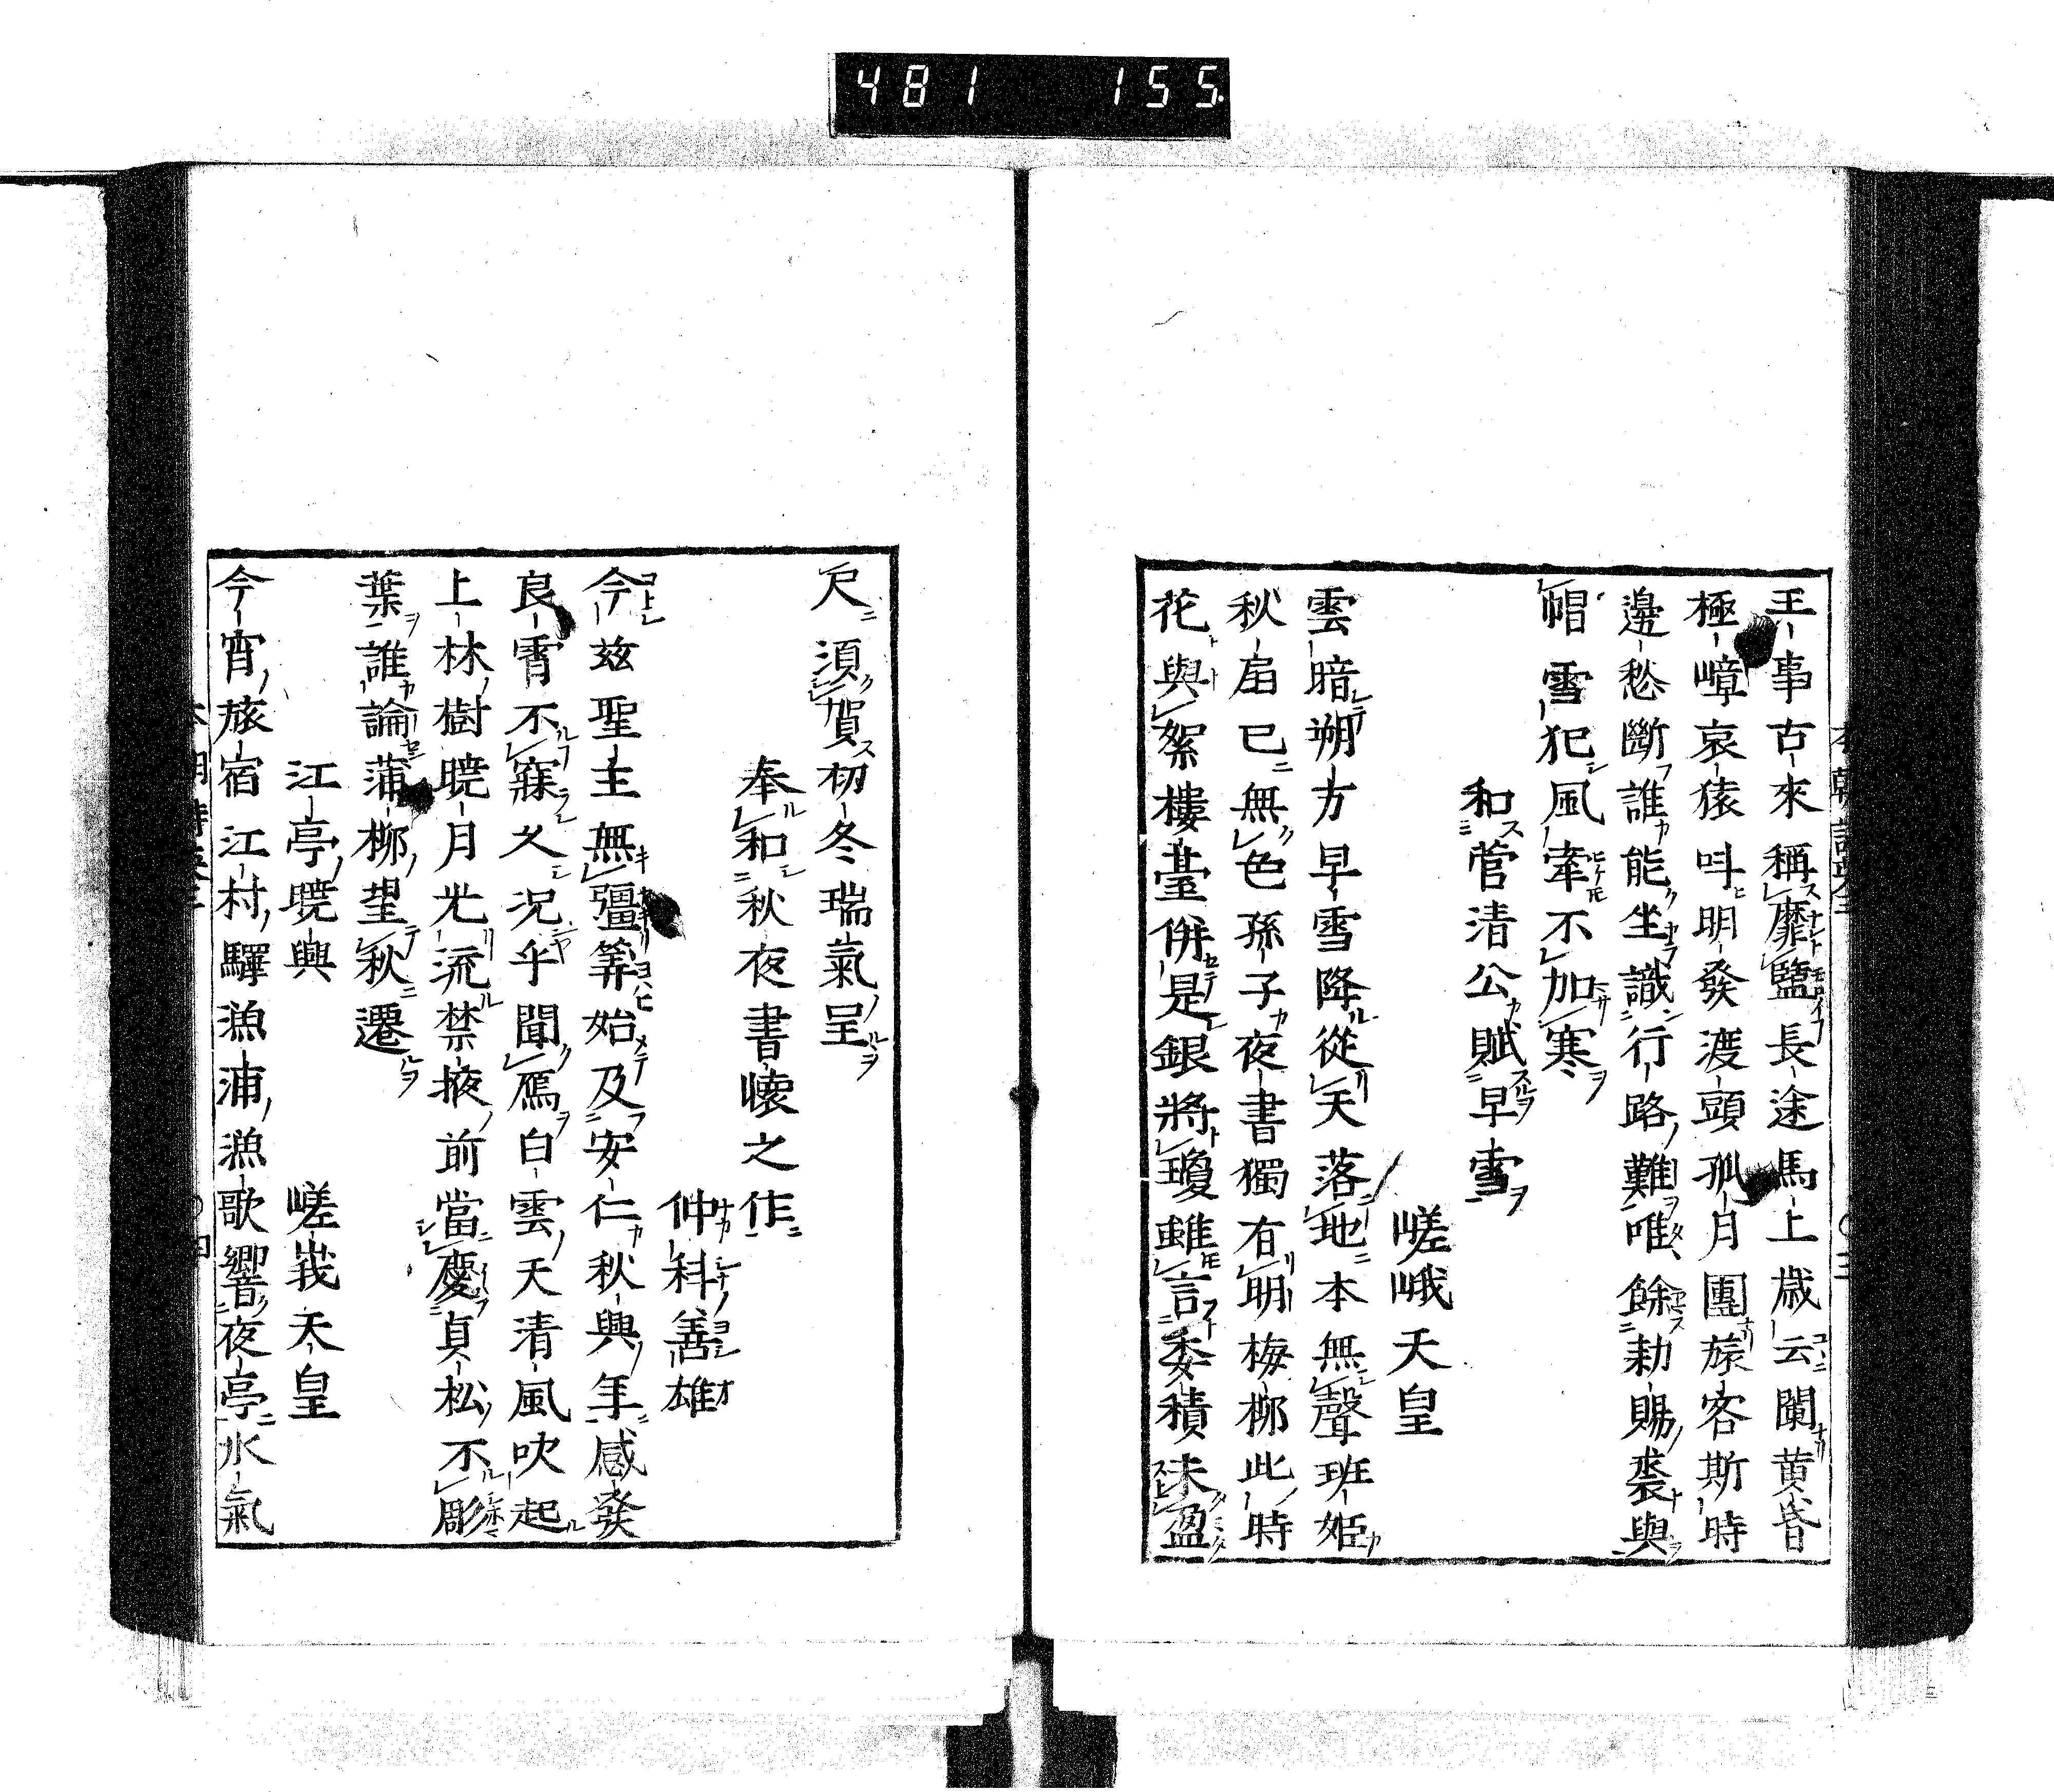 481 155
王事古來稱靡盬長途馬上歳云闌黄昏
極嶂哀猿叫明發渡頭孤月團旅客斯時
邊愁斷誰能坐識行路難唯餘勅賜裘與
帽雪犯風牽不加寒
和菅清公賦早雪
嵯峨天皇
雲暗朔方早雪降從天落地本無聲班姬
秋扇已無色孫子夜書獨有明梅柳此時
花與絮樓臺併是銀將瓊雖言委積未盈
尺須賀初冬瑞氣呈
奉和秋夜書懐之作
仲科善雄
今茲聖主無彊筭始及安仁秋興年感發
良霄不寐久況乎聞鴈白雲天清風吹起
上林樹曉月光流禁掖前當慶貞松不彫
葉誰論蒲柳望秋遷
江亭曉興
嵯峩天皇
今宵旅宿江村驛漁浦漁歌響夜亭水氣